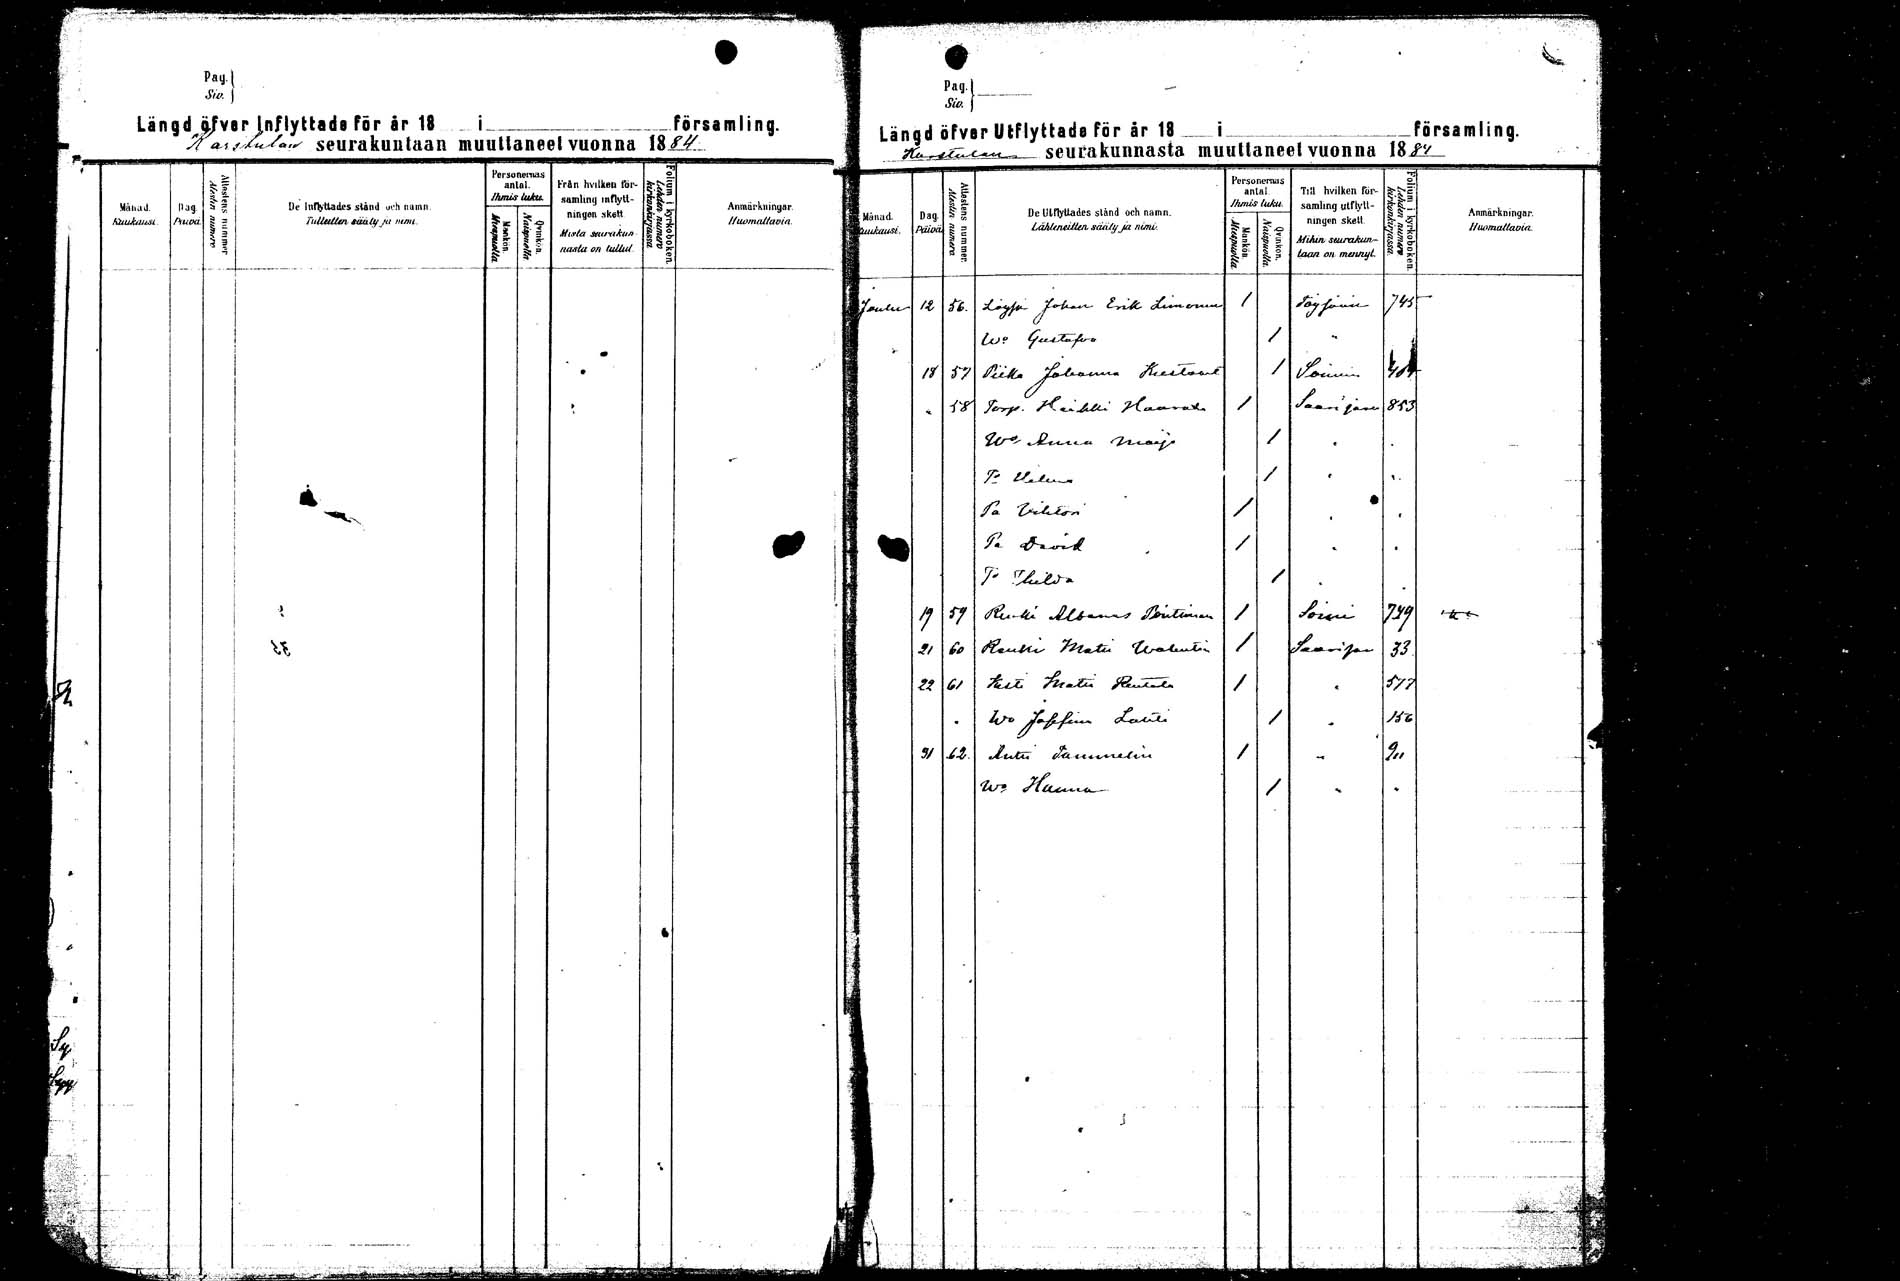 Pag.
Siv.
Längd öfver Inflyttade för år 18 i församling.
Karstulan seurakuntaan muuttaneet vuonna 1884
Månad.
Kuukausi.
Dag.
Päivä
Attestens nummer
Atestin numero
De Inflyttades stånd och namn.
Tulleitten sääty ja nimi.
Personernas
antal.
Ihmis luku.
Mankön.
Miespuolia
Qvinkön.
Naispuolia
Från hvilken för-
samling inflytt-
ningen skett
Mista seurakun-
nasta on tullut.
Folium i kyrkoboken.
Lehden numero
kirkonkirjassa
Anmärkningar.
Huomattavia.
Pag.
Siv.
Längd öfver Utflyttade för år 18 i församling.
Karstulan seurakunnasta muuttaneet vuonna 1884
Månad.
Kuukausi.
Dag.
Päivä
Attestens nummer.
Atestin numero
De Utflyttades stånd och namn.
Lähteneitten sääty ja nimi.
Personernas
antal.
Ihmis luku.
Mankön.
Miespuolia
Qvinkön.
Naispuolia.
Till hvilken för-
samling utflytt-
ningen skett.
Mihin seurakun-
taan on mennyt.
Folium i kyrkoboken.
Lehden numero
kirkonkirjassa.
Anmärkningar.
Huomattavia.
Joulu 12 56. Johan Erik Limonen 1 745
Wo Gustafva 1 "
18 57 Piika Johanna 1 Soinin
" 58 Torp. Heikki 1 Saarijärv 853
Wo Anna Maija 1 " "
To 1 " "
Pa Viktori 1 " "
Pa David 1 " "
To Thilda 1 " "
19 59 Renki Albanus 1 Soini 729
21 60 Renki Matti 1 Saarijär 33
22 61 Matti 1 " 577
" Wo Josefina 1 " 156
31 62. Antti Tammelin 1 " 911
Wo Hanna 1 " "